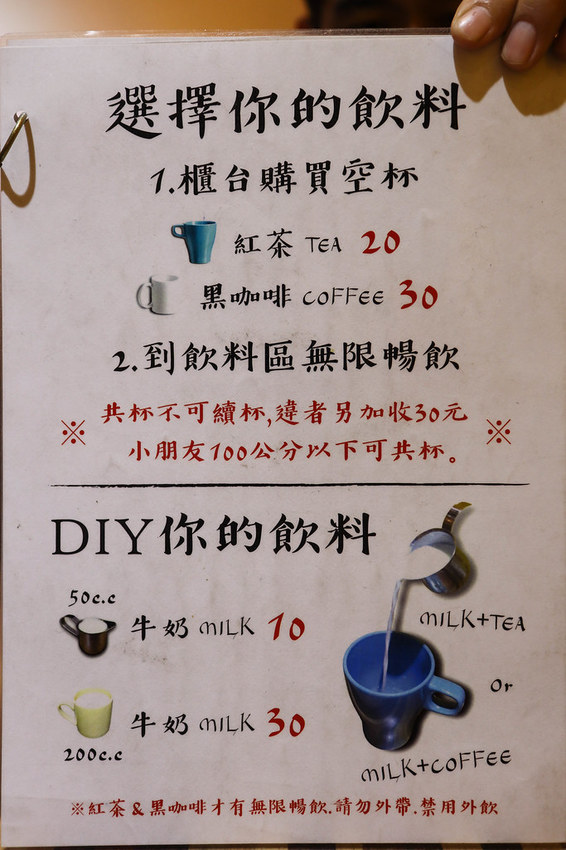 選擇你的飲料
1.櫃台購買空杯
紅茶 TEA 20
黑咖啡 COFFEE 30
2.到飲料區無限暢飲
※ 共杯不可續杯,違者另加收30元 ※
小朋友100公分以下可共杯。
DIY你的飲料
50c.c
牛奶 MILK 10
MILK+TEA
Or
牛奶 MILK 30
200c.c
MILK+COFFEE
※紅茶&黑咖啡才有無限暢飲.請勿外帶.禁用外飲